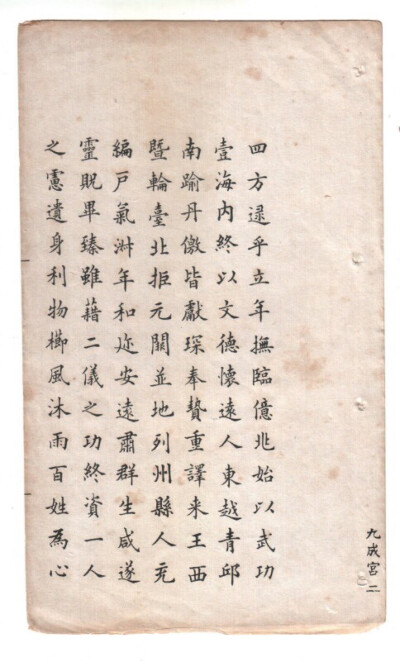 四方逮乎立年撫臨億兆始以武功
壹海内終以文德懷遠人東越青邱
南踰丹徼皆獻琛奉贄重譯来王西
暨輪臺北拒元闕並地列州縣人充
編户氣淑年和迩安遠肅群生咸遂
靈貺畢臻雖藉二儀之功終資一人
之慮遺身利物櫛風沐雨百姓為心
九成宮 二